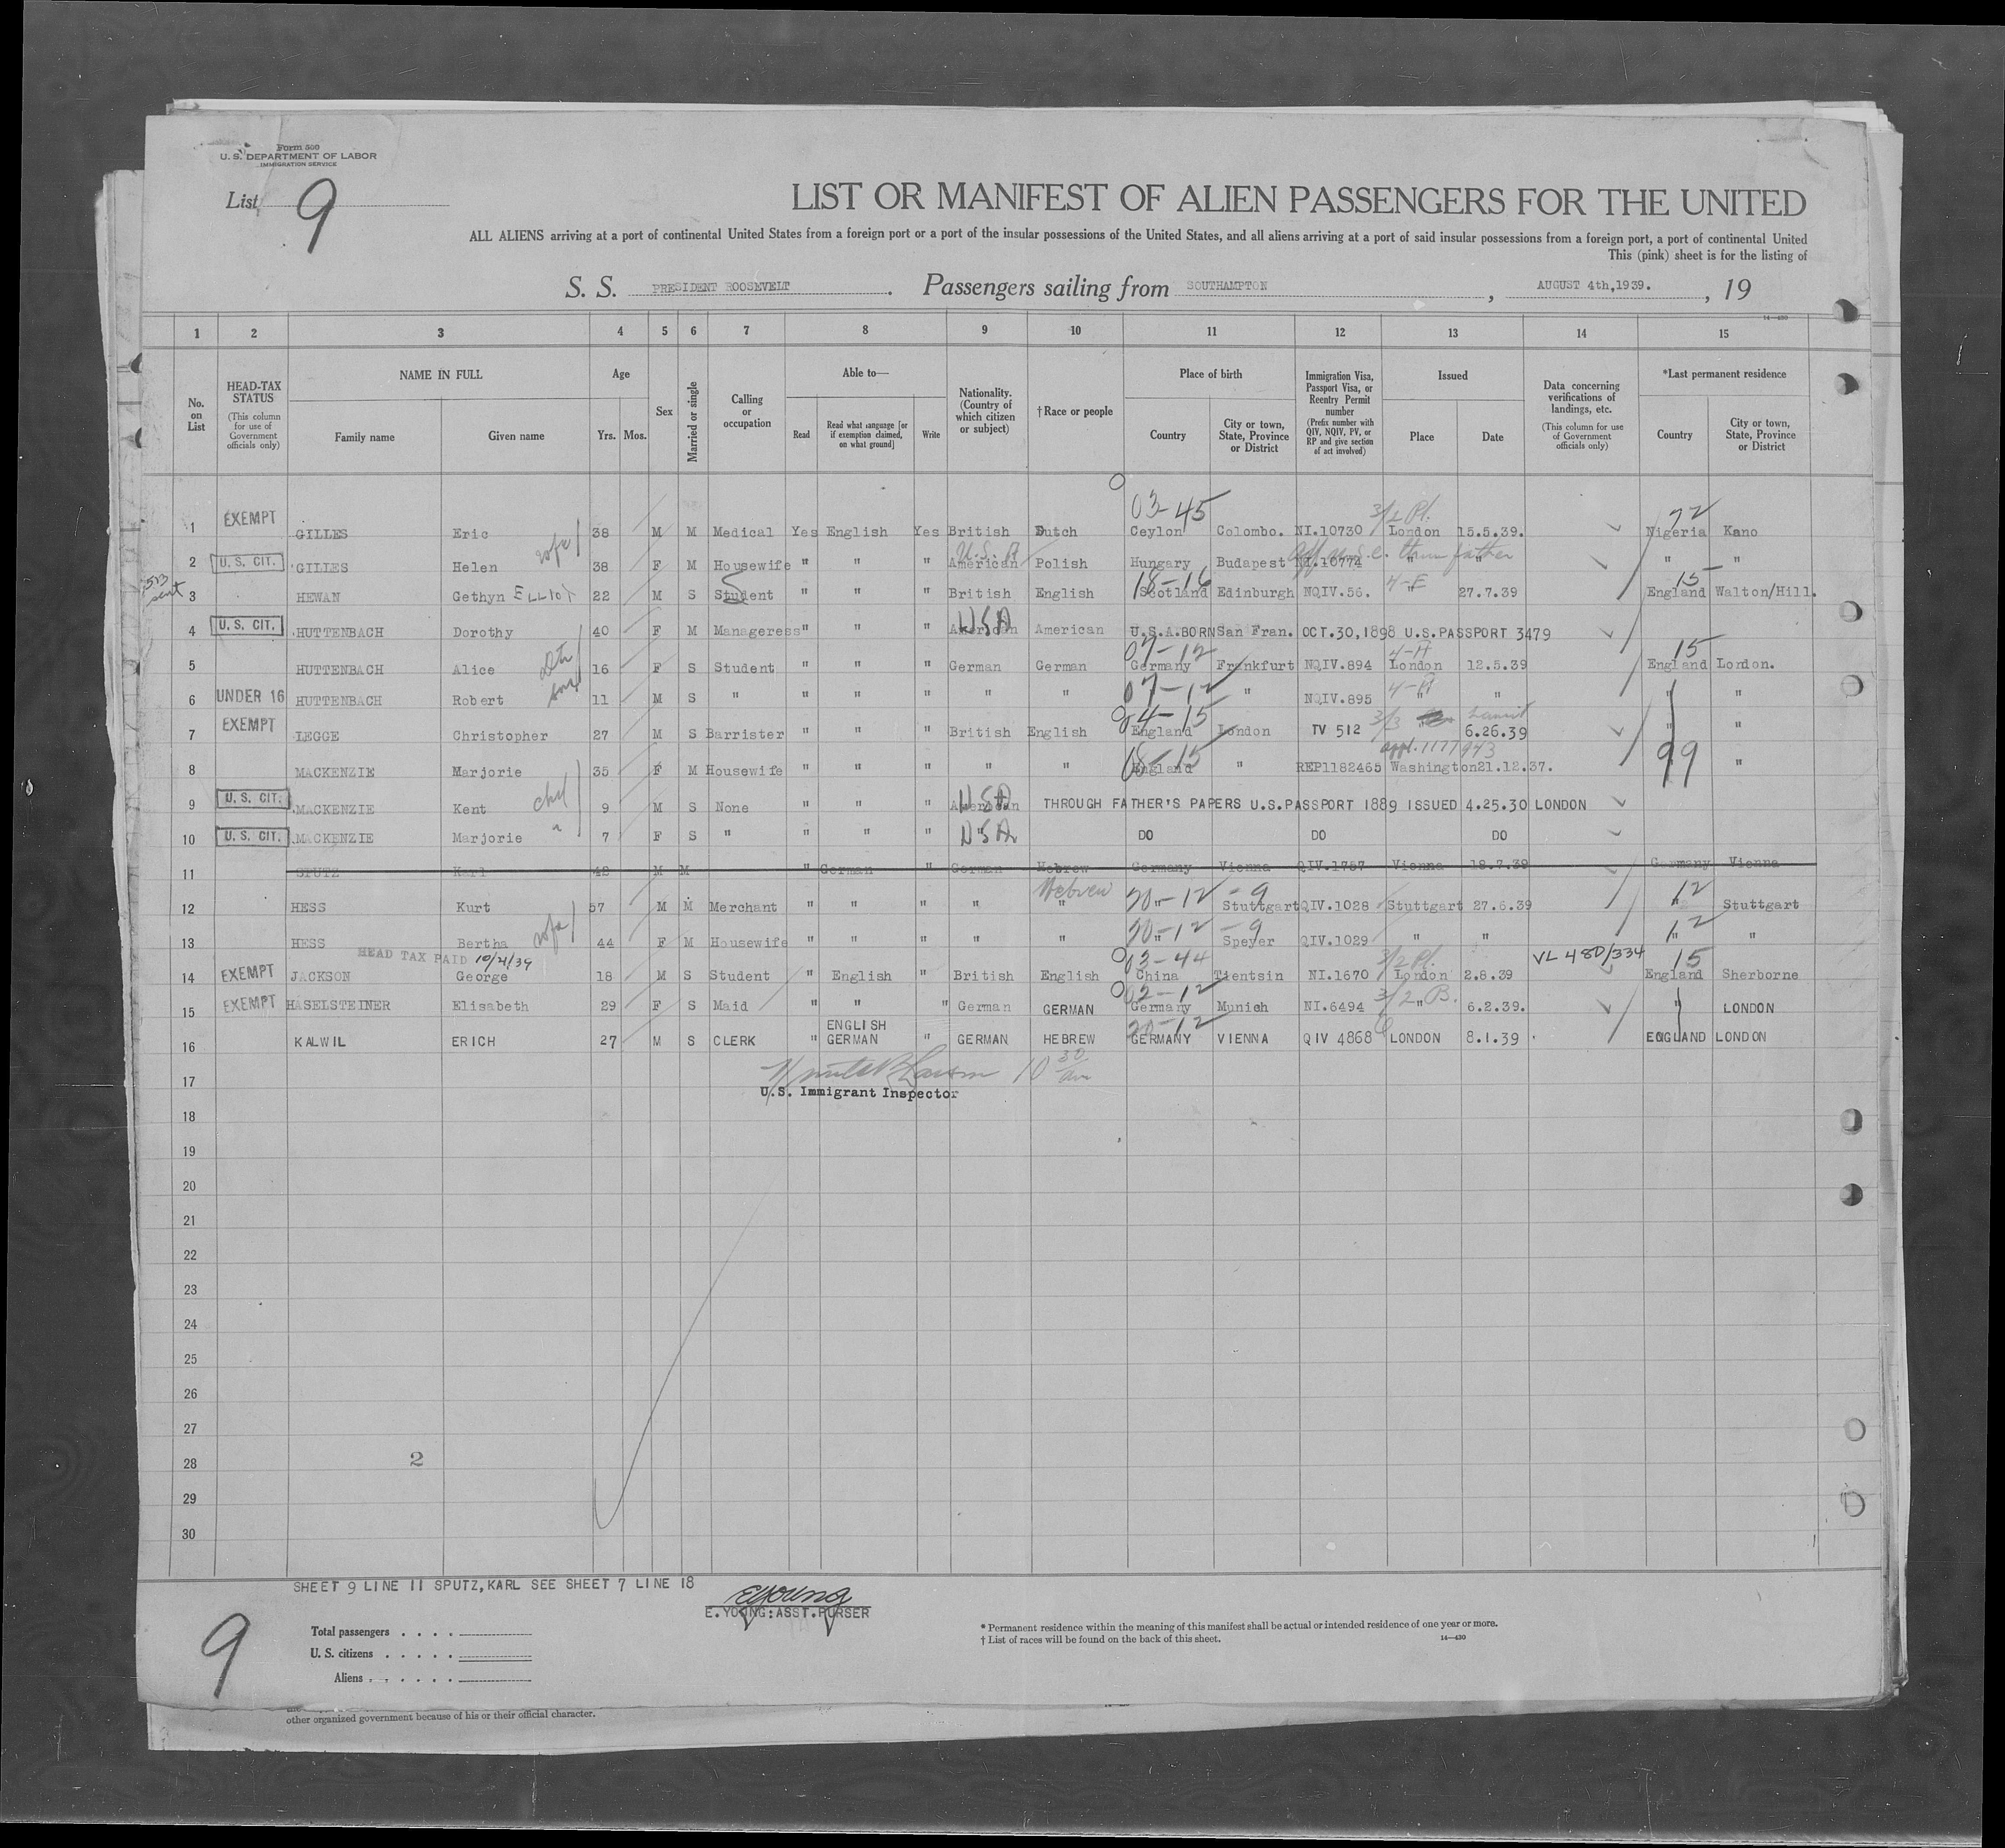 Form 500
U. S. DEPARTMENT OF LABOR
IMMIGRATION SERVICE
List 9
LIST OR MANIFEST OF ALIEN PASSENGERS FOR THE UNITED
ALL ALIENS arriving at a port of continental United States from a foreign port or a port of the insular possessions of the United States, and all aliens arriving at a port of said insular possessions from a foreign port, a port of continental United
This (pink) sheet is for the listing of
S. S. PRESIDENT ROOSEVELT. Passengers sailing from SOUTHAMPTON, AUGUST 4th,1939., 19
14—430
1 2 3 4 5 6 7 8 9 10 11 12 13 14 15
No. on List
HEAD-TAX STATUS (This column for use of Government officials only)
NAME IN FULL
Family name Given name
Age
Yrs. Mos.
Sex
Married or single
Calling or occupation
Able to—
Read
Read what language [or if exemption claimed, on what ground]
Write
Nationality. (Country of which citizen or subject)
†Race or people
Place of birth
Country
City or town, State, Province or District
Immigration Visa, Passport Visa, or Reentry Permit number (Prefix number with QIV, NQIV, PV, or RP and give section of act involved)
Issued
Place Date
Data concerning verifications of landings, etc. (This column for use of Government officials only)
*Last permanent residence
Country
City or town, State, Province or District
03-45 3/2 Pl. 72
1 EXEMPT GILLES Eric 38 M M Medical Yes English Yes British Dutch Ceylon Colombo. NI.10730 London 15.5.39. Nigeria Kano
wife U.S.A. father
2 U. S. CIT. GILLES Helen 38 F M Housewife " " " American Polish Hungary Budapest NI.10774 " " " "
513 sent 18-16 4-E 15
3 HEWAN Gethyn ELLIOT 22 M S Student " " " British English Scotland Edinburgh NQIV.56. " 27.7.39 England Walton/Hill.
USA
4 U. S. CIT. HUTTENBACH Dorothy 40 F M Manageress " " " American American U.S.A.BORN San Fran. OCT.30,1898 U.S.PASSPORT 3479
07-12 4-A 15
5 HUTTENBACH Alice 16 F S Student " " " German German Germany Frankfurt NQIV.894 London 12.5.39 England London.
son 07-12 4-A
6 UNDER 16 HUTTENBACH Robert 11 M S " " " " " " " NQIV.895 " " " "
04-15 3/3
7 EXEMPT LEGGE Christopher 27 M S Barrister " " " British English England London TV 512 " 6.26.39 " "
08-15 appl. 1171943 99
8 MACKENZIE Marjorie 35 F M Housewife " " " " " England " REP1182465 Washington 21.12.37. "
USA
9 U. S. CIT. MACKENZIE Kent 9 M S None " " " American THROUGH FATHER'S PAPERS U.S.PASSPORT 1889 ISSUED 4.25.30 LONDON
USA
10 U. S. CIT. MACKENZIE Marjorie 7 F S " " " " DO DO DO
11 SPUTZ Karl 42 M M " German " German Hebrew Germany Vienna QIV.1787 Vienna 18.7.39 Germany Vienna
Hebrew 20-12-9 12
12 HESS Kurt 57 M M Merchant " " " " " " Stuttgart QIV.1028 Stuttgart 27.6.39 " Stuttgart
wife 20-12-9 12
13 HESS Bertha 44 F M Housewife " " " " " " Speyer QIV.1029 " " " "
HEAD TAX PAID 10/21/39 03-44 3/2 Pl. VL 480/334 15
14 EXEMPT JACKSON George 18 M S Student " English " British English China Tientsin NI.1670 London 2.8.39 England Sherborne
02-12 3/2 B.
15 EXEMPT HASELSTEINER Elisabeth 29 F S Maid " " " German GERMAN Germany Munich NI.6494 " 6.2.39. " LONDON
ENGLISH 20-12
16 KALWIL ERICH 27 M S CLERK " GERMAN " GERMAN HEBREW GERMANY VIENNA QIV 4868 LONDON 8.1.39 ENGLAND LONDON
10 30 am
17
U.S. Immigrant Inspector
18
19
20
21
22
23
24
25
26
27
28 2
29
30
SHEET 9 LINE 11 SPUTZ,KARL SEE SHEET 7 LINE 18
EYoung
E.YOUNG:ASST.PURSER
9
Total passengers . . . .
U. S. citizens . . . . .
Aliens . . . . . .
* Permanent residence within the meaning of this manifest shall be actual or intended residence of one year or more.
† List of races will be found on the back of this sheet.
14—430
other organized government because of his or their official character.